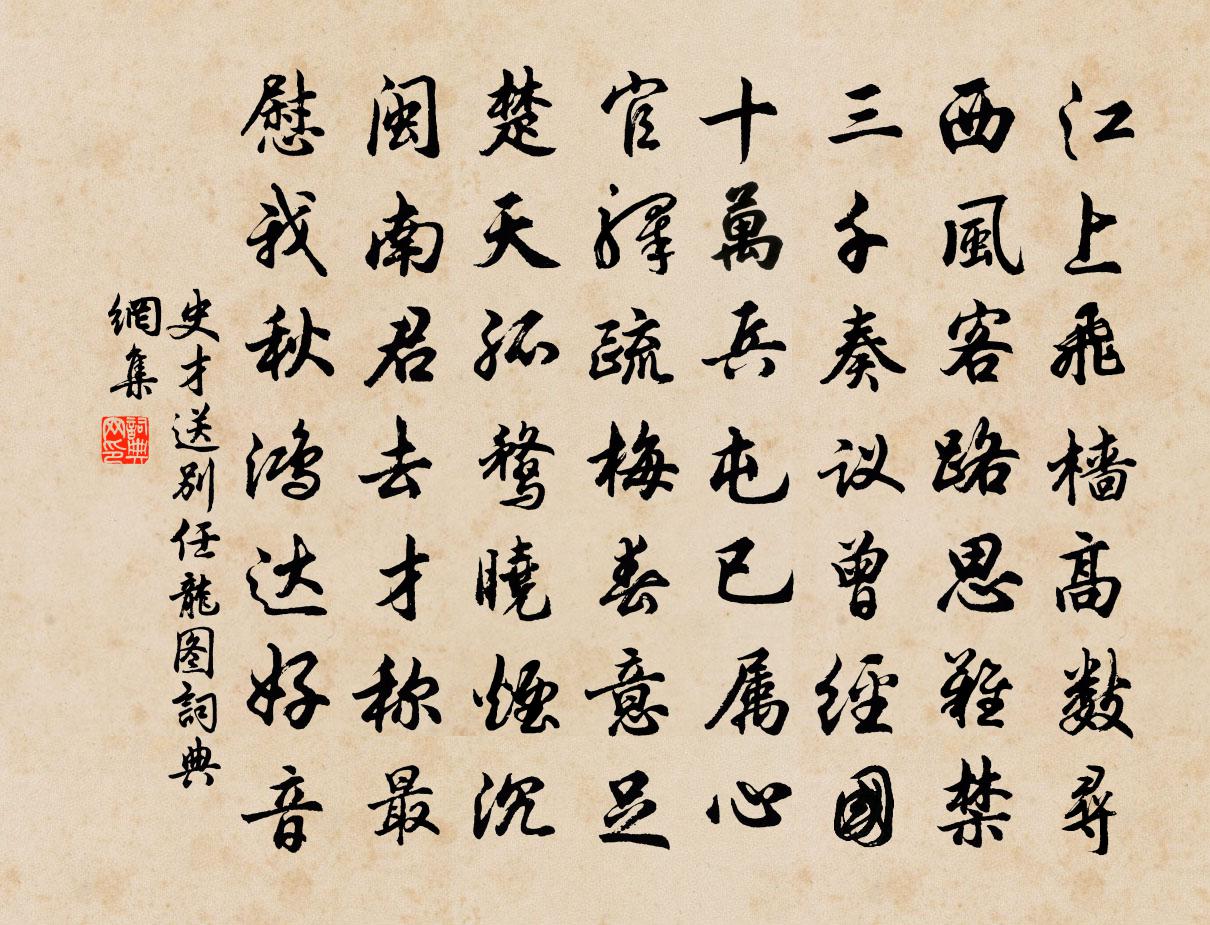 江上飛檣高數尋
西風客路思難禁
三千奏议曾經國
十萬兵屯已属心
官驛疏梅春意足
楚天孤鶩曉煙沉
闽南君去才称最
慰我秋鴻达好音
史才送别任龍图詞典
網集
詞典
网印